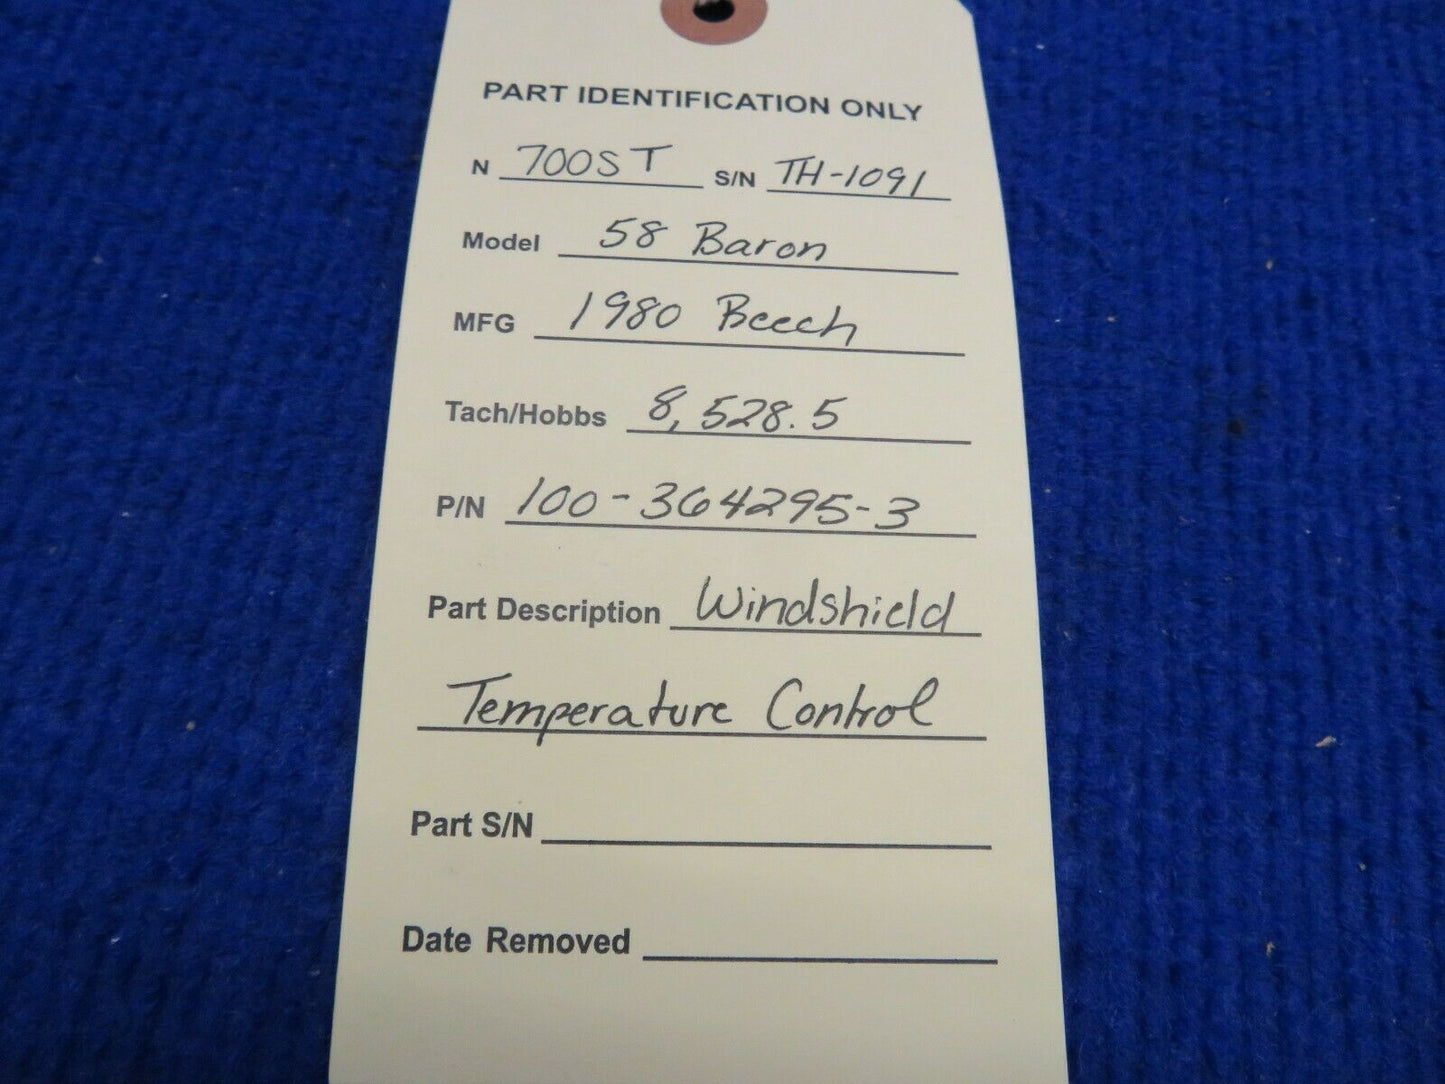 PART IDENTIFICATION ONLY
N 700ST S/N TH-1091
Model 58 Baron
MFG 1980 Beech
Tach/Hobbs 8,528.5
P/N 100-364295-3
Part Description Windshield
Temperature Control
Part S/N
Date Removed